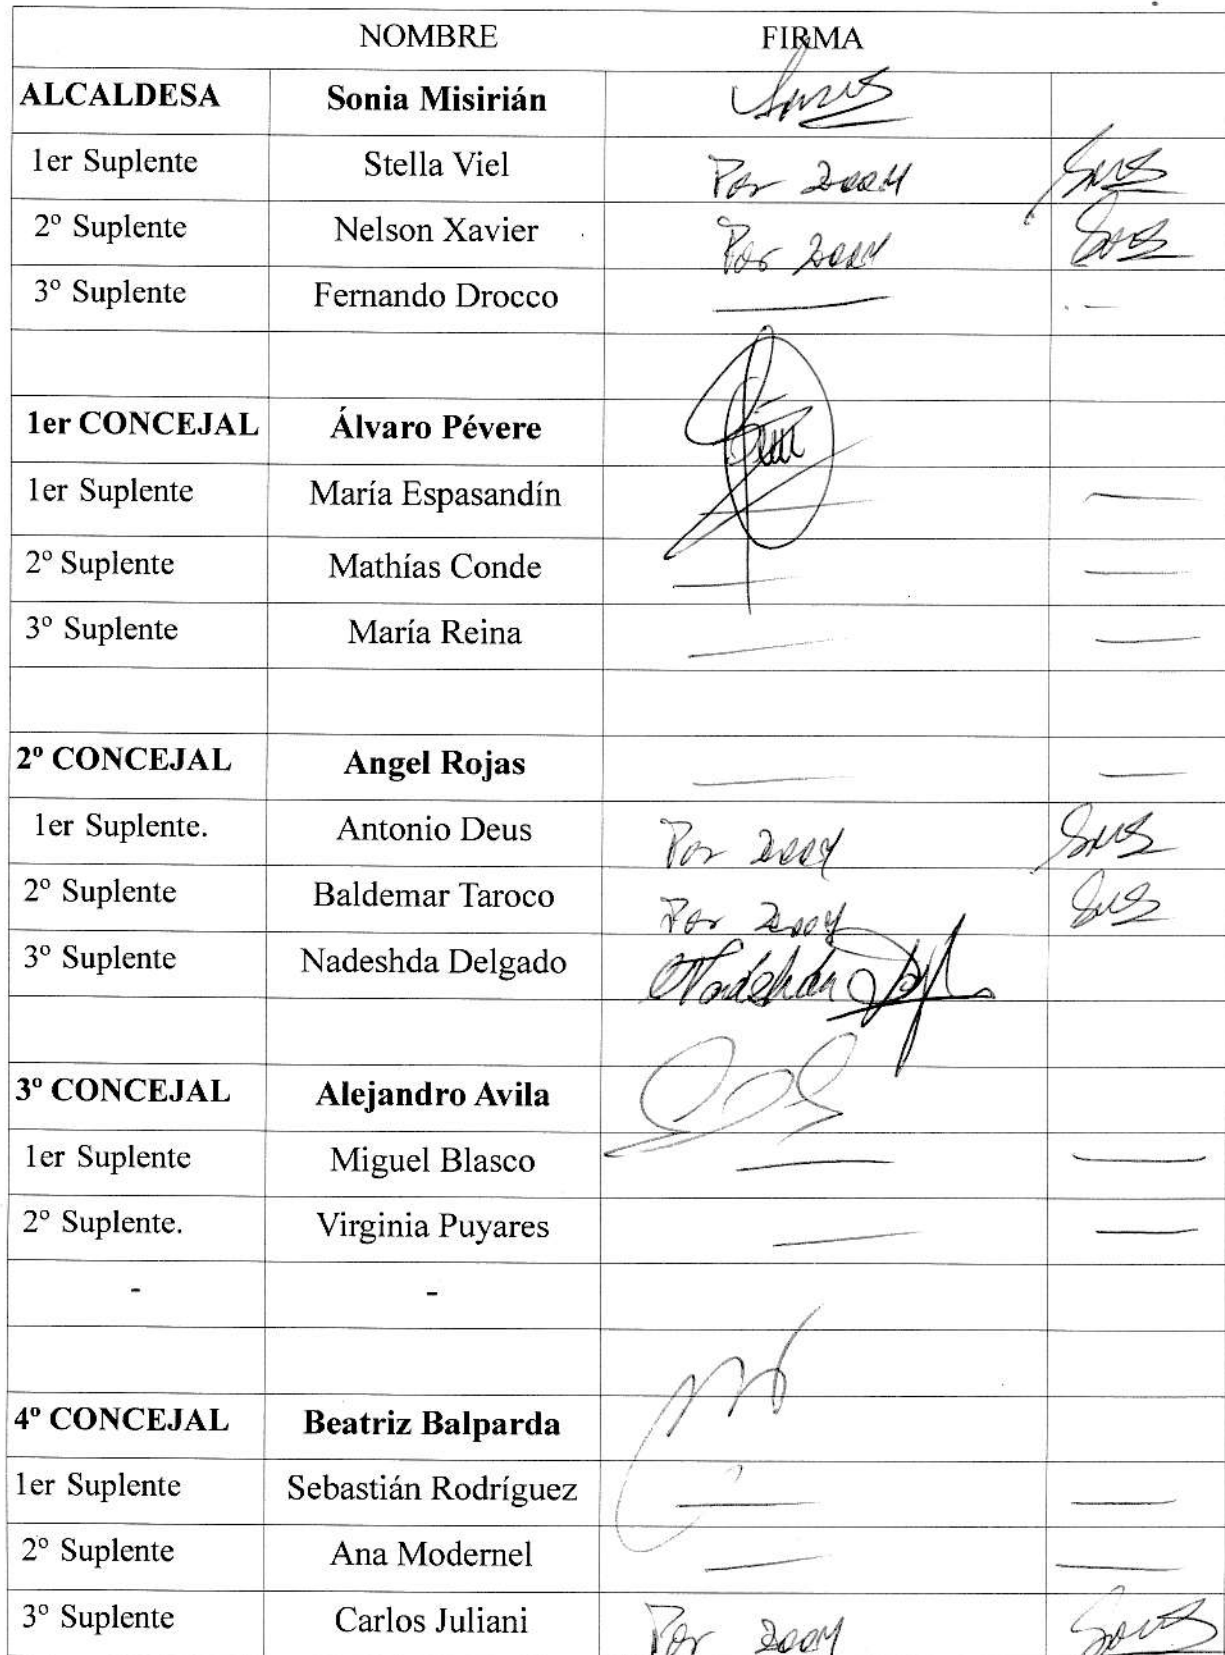 NOMBRE FIRMA
ALCALDESA Sonia Misirián
1er Suplente Stella Viel Por Zoom
2º Suplente Nelson Xavier Por Zoom
3º Suplente Fernando Drocco
1er CONCEJAL Álvaro Pévere
1er Suplente María Espasandín
2º Suplente Mathías Conde
3º Suplente María Reina
2º CONCEJAL Angel Rojas
1er Suplente. Antonio Deus Por Zoom
2º Suplente Baldemar Taroco Por Zoom
3º Suplente Nadeshda Delgado Nadeshda
3º CONCEJAL Alejandro Avila
1er Suplente Miguel Blasco
2º Suplente. Virginia Puyares
- -
4º CONCEJAL Beatriz Balparda
1er Suplente Sebastián Rodríguez
2º Suplente Ana Modernel
3º Suplente Carlos Juliani Por Zoom